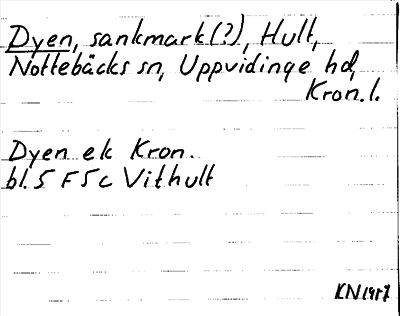 Dyen, sankmark(?), Hult,
Nottebäcks sn, Uppvidinge hd,
Kron. l.
Dyen ek Kron.
bl. 5 F 5 c Vithult